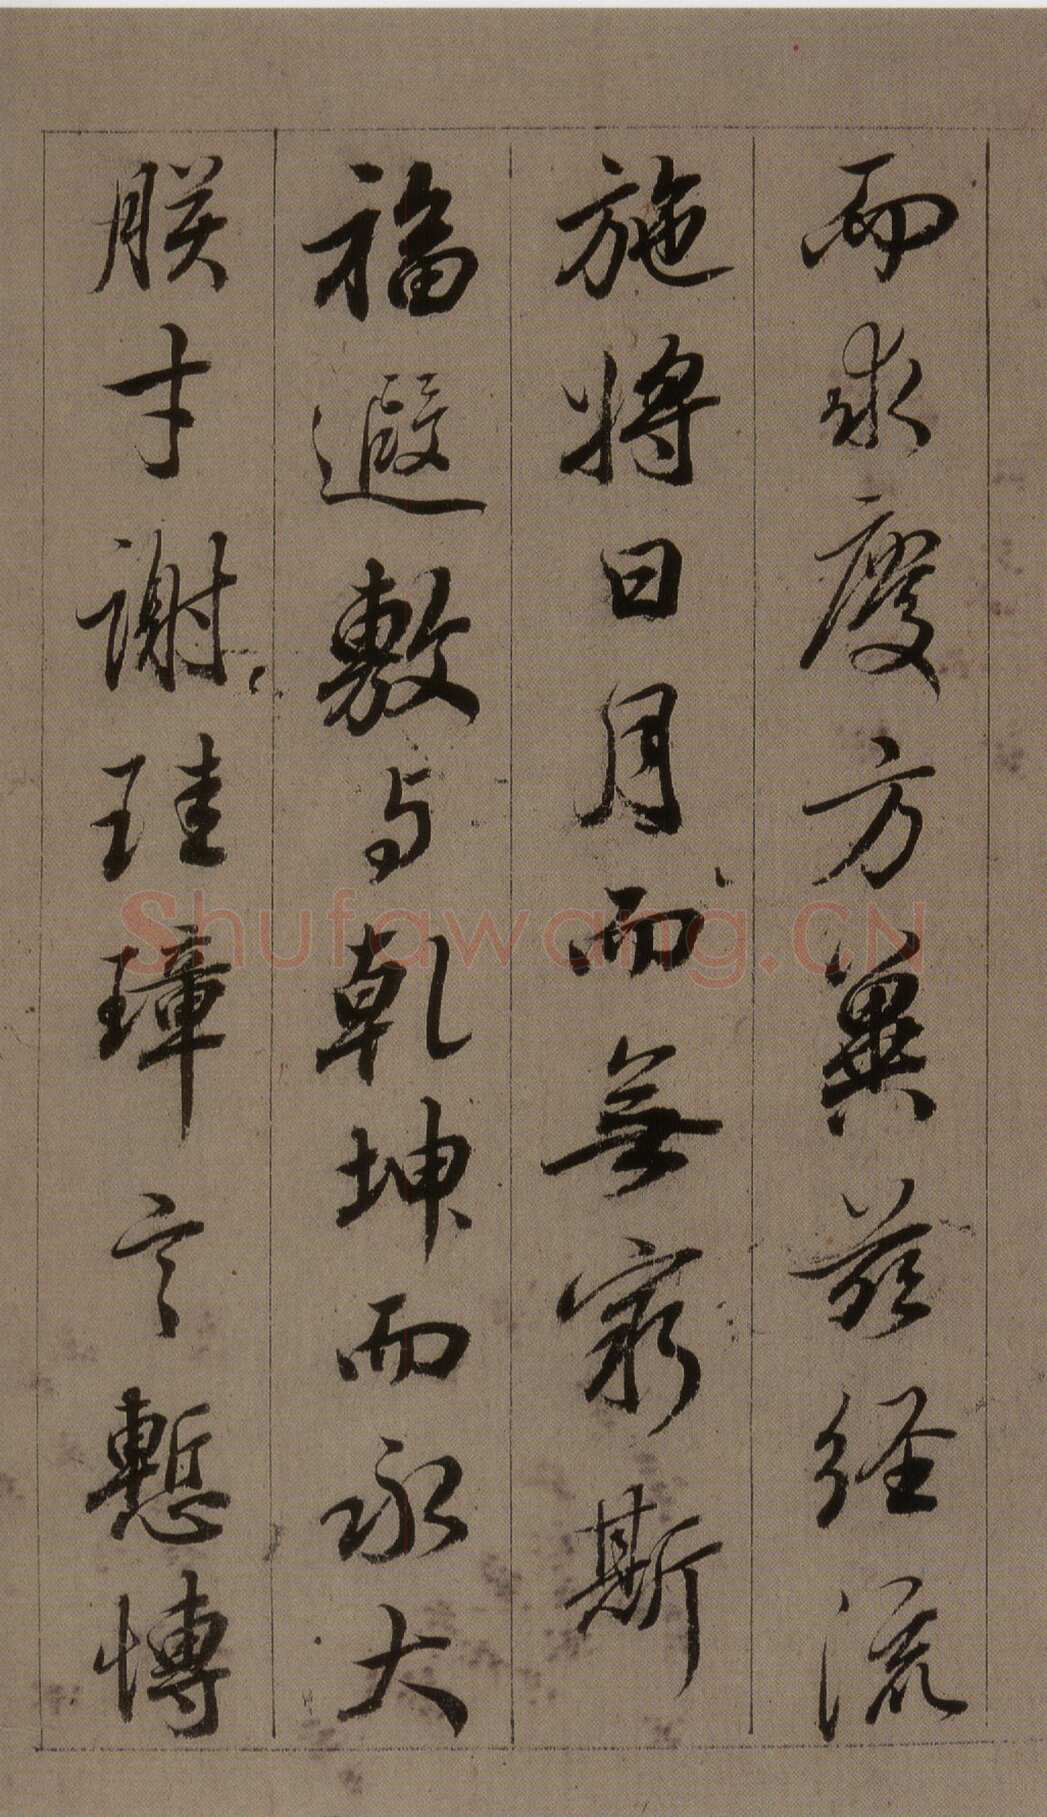 而求度方冀茲经流
施將日月而無窮斯
福遐敷与乾坤而永大
朕才謝珪璋言慙博
Shufawang.CN